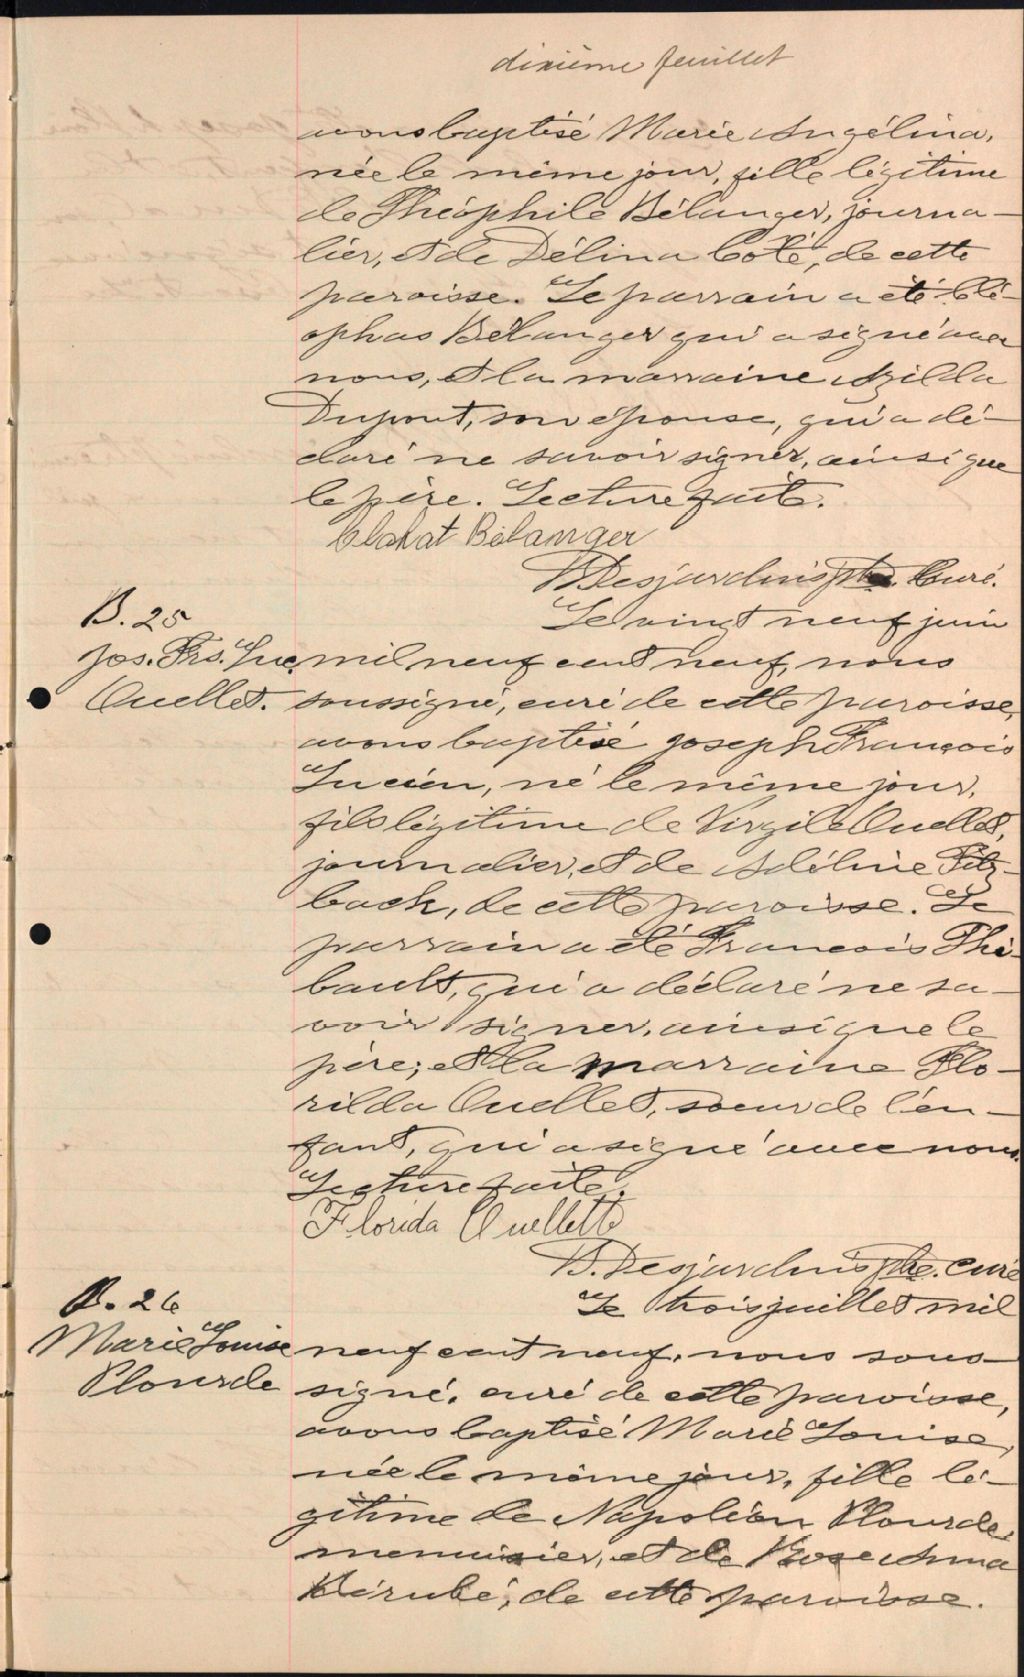 dixième feuillet
avons baptisé Marie Angélina,
née le même jour, fille légitime
de Théophile Bélanger, journa-
lier, et de Délina Coté, de cette
paroisse. Le parrain a été Clé-
ophas Bélanger qui a signé avec
nous, et la marraine Azilda
Dupont, son épouse, qui a dé-
claré ne savoir signer, ainsi que
le père. Lecture faite.
Bélanger
B. Desjardins Ptre. Curé.
B. 25
Le vingt neuf juin
Jos. Frs. Luc. mil neuf cent neuf, nous
Ouellet. soussigné, curé de cette paroisse,
avons baptisé Joseph François
Lucien, né le même jour,
fils légitime de Virgile Ouellet,
journalier, et de Adéline Fitz-
back, de cette paroisse. Le
parrain a été François Thi-
bault, qui a déclaré ne sa-
voir signer, ainsi que le
père; et la marraine Flo-
rilda Ouellet, soeur de l'en-
fant, qui a signé avec nous.
Lecture faite.
Florida Ouellette
B. Desjardins Ptre. curé
B. 26
Le trois juillet mil
Marie Louise neuf cent neuf, nous sous-
Plourde signé, curé de cette paroisse,
avons baptisé Marie Louise,
née le même jour, fille lé-
gitime de Napoléon Plourde,
menuisier, et de Rose Anna
Bérubé, de cette paroisse.